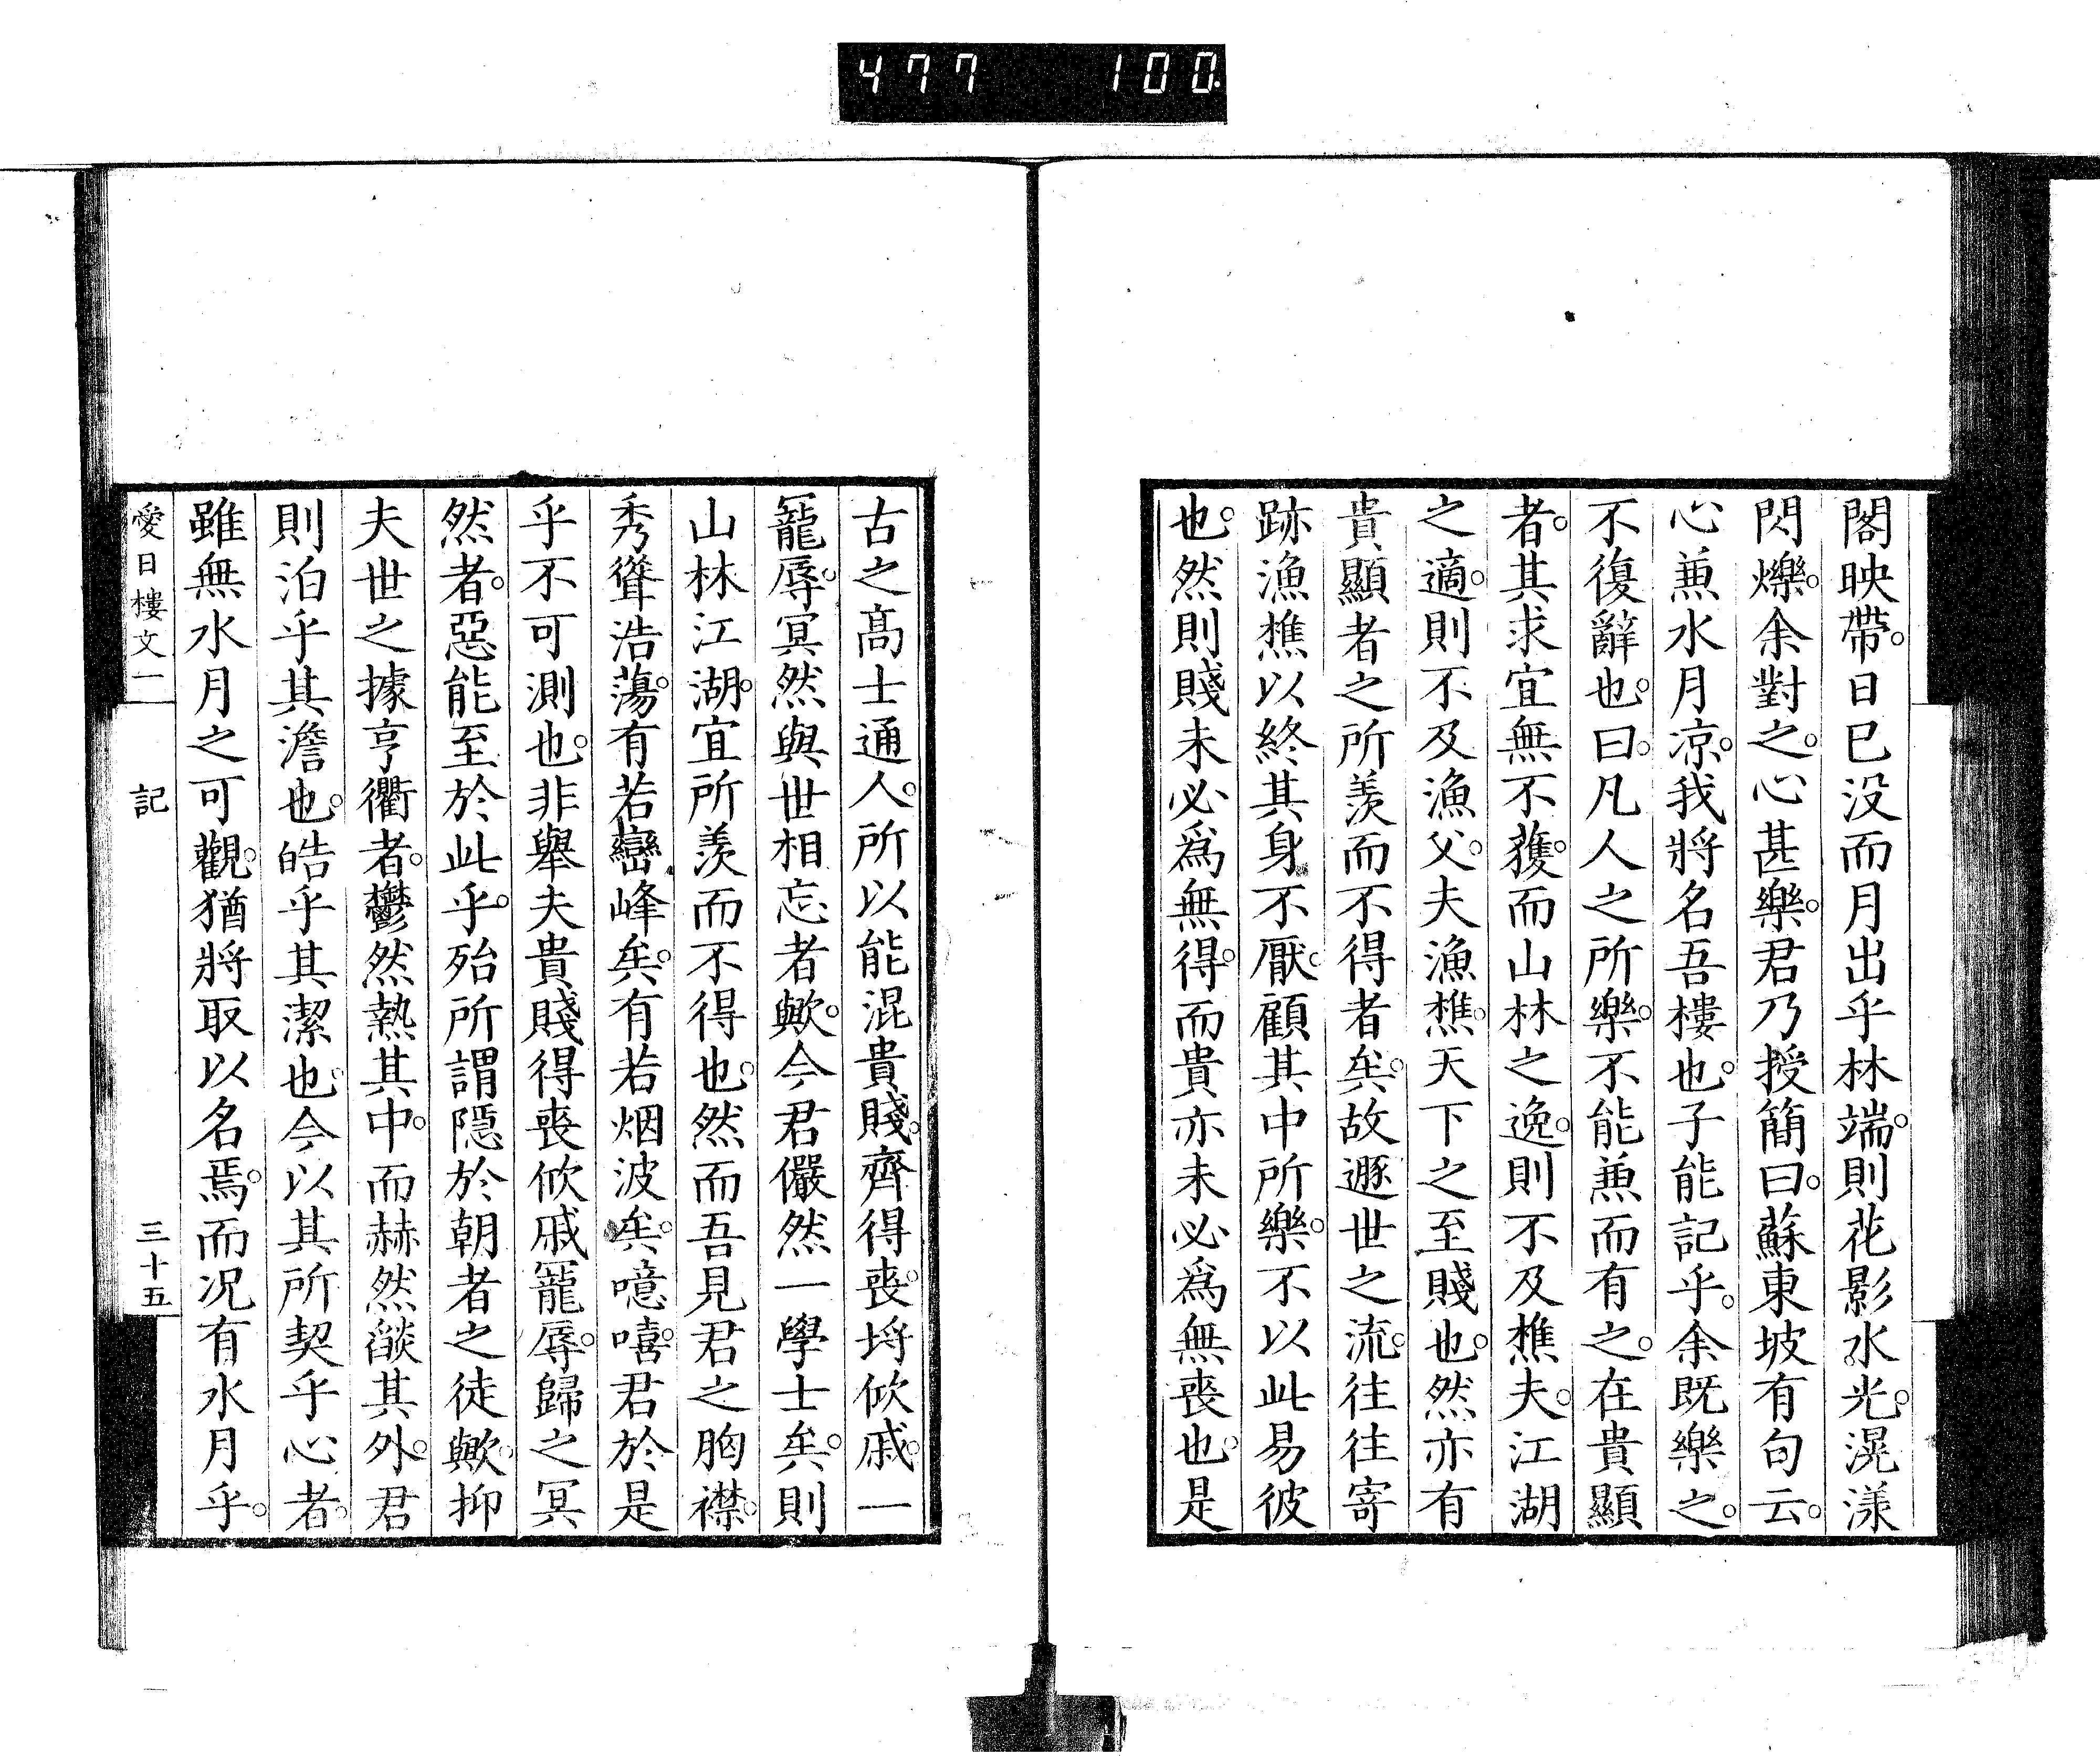 477 100
閣映帶。日已没而月出乎林端。則花影水光。滉漾
閃爍。余對之。心甚樂。君乃授簡曰。蘇東坡有句云。
心兼水月凉。我將名吾樓也。子能記乎。余既樂之。
不復辭也。曰。凡人之所樂。不能兼而有之。在貴顯
者。其求宜無不獲。而山林之逸。則不及樵夫。江湖
之適。則不及漁父。夫漁樵。天下之至賤也。然亦有
貴顯者之所羨而不得者矣。故遯世之流。往往寄
跡漁樵以終其身不厭。顧其中所樂。不以此易彼
也。然則賤未必爲無得。而貴亦未必爲無喪也。是
古之高士通人。所以能混貴賤。齊得喪。埒欣戚。一
寵辱。冥然與世相忘者歟。今君儼然一學士矣。則
山林江湖。宜所羨而不得也。然而吾見君之胸襟。
秀聳浩蕩。有若巒峰矣。有若烟波矣。噫嘻。君於是
乎不可測也。非舉夫貴賤得喪欣戚寵辱。歸之冥
然者。惡能至於此乎。殆所謂隱於朝者之徒歟。抑
夫世之據亨衢者。鬱然熱其中。而赫然燄其外。君
則泊乎其澹也。皓乎其潔也。今以其所契乎心者。
雖無水月之可觀。猶將取以名焉。而况有水月乎。
愛日樓文二 記 三十五